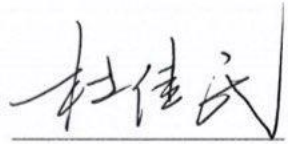 杜佳民